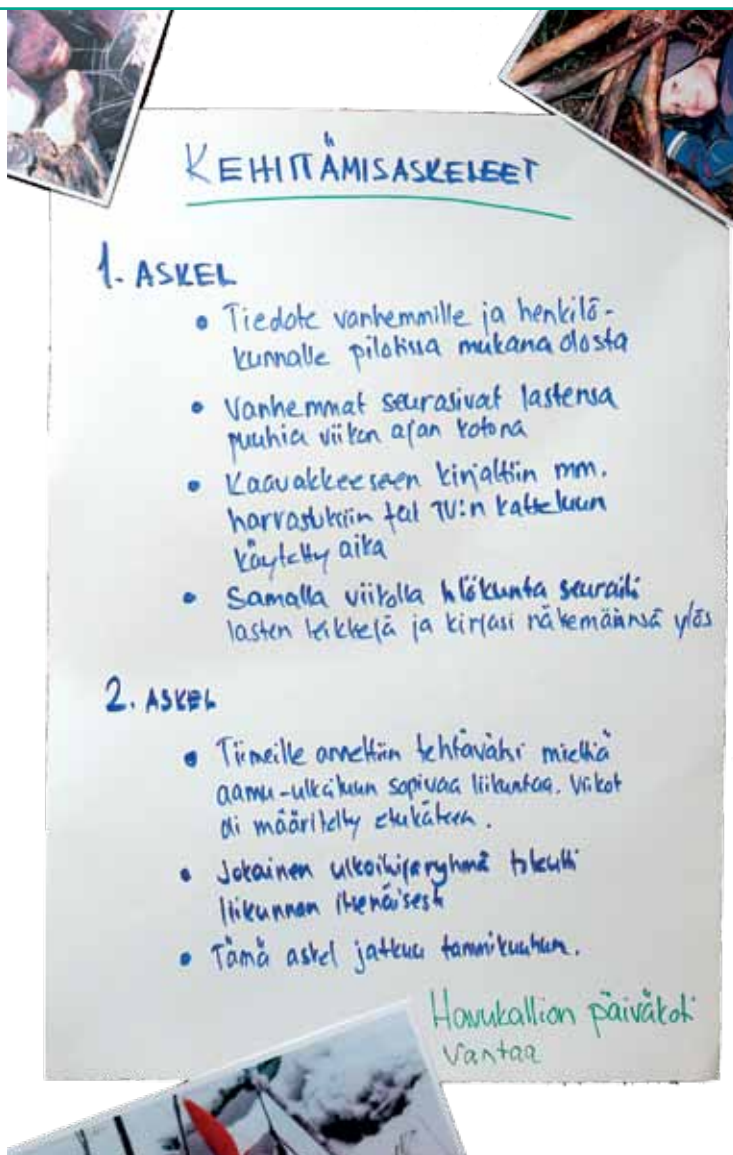 KEHITTÄMISASKELEET
1. ASKEL
• Tiedote vanhemmille ja henkilö-
kunnalle pilotissa mukana olosta
• Vanhemmat seurasivat lastensa
puuhia viikon ajan kotona
• Kaavakkeeseen kirjattiin mm.
harrastuksiin tai TV:n katteluun
käytetty aika
• Samalla viikolla hlökunta seuraili
lasten leikkejä ja kirjasi näkemäänsä ylös
2. ASKEL
• Tiimeille annettiin tehtäväksi miettiä
aamu-ulkoiluun sopivaa liikuntaa. Viikot
oli määritelty etukäteen.
• Jokainen ulkoilijaryhmä toteutti
liikunnan itsenäisesti
• Tämä askel jatkuu tammikuuhun.
Havukallion päiväkoti
Vantaa